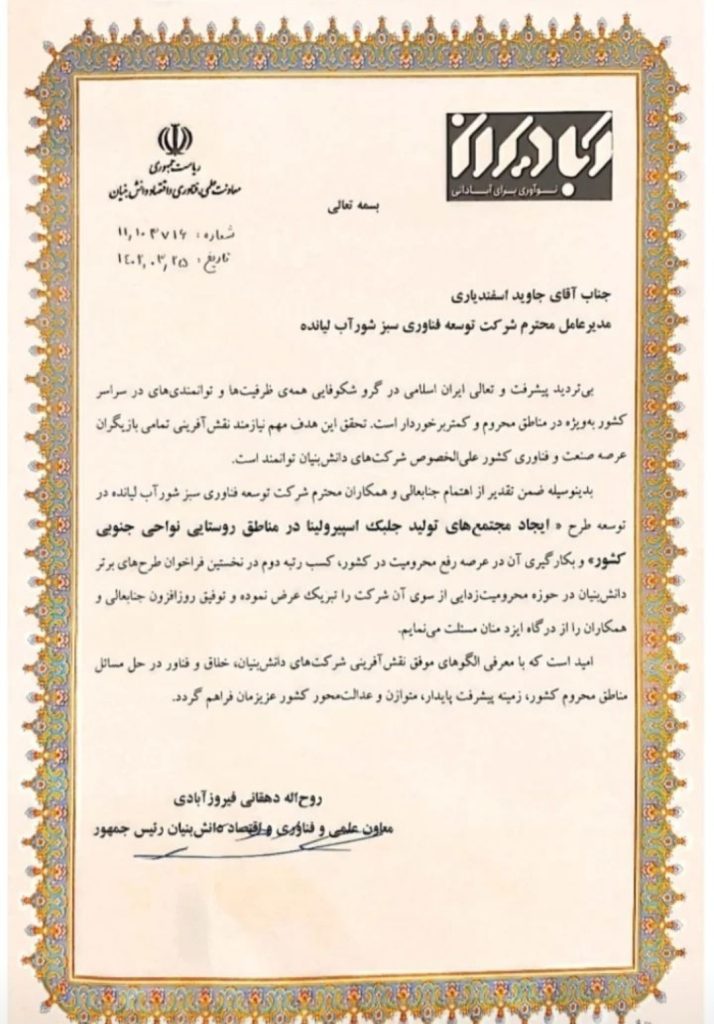 آبادیران
نوآوری برای آبادانی
ریاست جمهوری
معاونت علمی، فناوری و اقتصاد دانش بنیان
بسمه تعالی
شماره: ۱۱,۱۰۴۷۱۶
تاریخ: ۱۴۰۲,۰۳,۲۵
جناب آقای جاوید اسفندیاری
مدیرعامل محترم شرکت توسعه فناوری سبز شورآب لیانده
بی‌تردید پیشرفت و تعالی ایران اسلامی در گرو شکوفایی همه‌ی ظرفیت‌ها و توانمندی‌های در سراسر
کشور به‌ویژه در مناطق محروم و کمتربرخوردار است. تحقق این هدف مهم نیازمند نقش‌آفرینی تمامی بازیگران
عرصه صنعت و فناوری کشور علی‌الخصوص شرکت‌های دانش‌بنیان توانمند است.
بدینوسیله ضمن تقدیر از اهتمام جنابعالی و همکاران محترم شرکت توسعه فناوری سبز شورآب لیانده در
توسعه طرح « ایجاد مجتمع‌های تولید جلبک اسپیرولینا در مناطق روستایی نواحی جنوبی
کشور» و بکارگیری آن در عرصه رفع محرومیت در کشور، کسب رتبه دوم در نخستین فراخوان طرح‌های برتر
دانش‌بنیان در حوزه محرومیت‌زدایی از سوی آن شرکت را تبریک عرض نموده و توفیق روزافزون جنابعالی و
همکاران را از درگاه ایزد منان مسئلت می‌نمایم.
امید است که با معرفی الگوهای موفق نقش‌آفرینی شرکت‌های دانش‌بنیان، خلاق و فناور در حل مسائل
مناطق محروم کشور، زمینه پیشرفت پایدار، متوازن و عدالت‌محور کشور عزیزمان فراهم گردد.
روح‌اله دهقانی فیروزآبادی
معاون علمی و فناوری و اقتصاد دانش‌بنیان رئیس جمهور